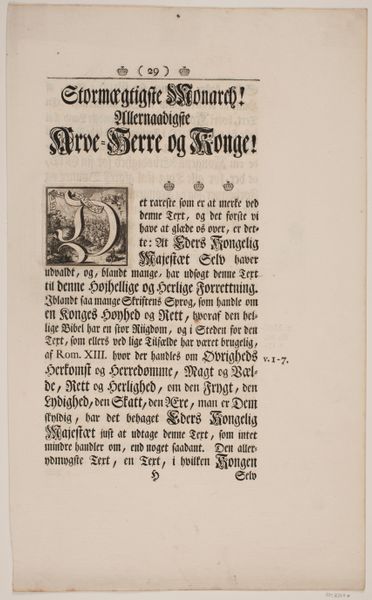 ( 29 )
Stormægtigste Monarch!
Allernaadigste
Arve-Herre og Konge!
Det rareste som er at merke ved
denne Text, og det første vi
have at glæde os over, er det-
te: At Eders Kongelig
Majestæt Selv haver
udvaldt, og, blandt mange, har udsogt denne Text
til denne Højhellige og Herlige Forrettning.
Iblandt saa mange Skriftens Sprog, som handle om
en Konges Høyhed og Rett, hvoraf den hel-
lige Bibel har en stor Riigdom, og i Steden for den
Text, som ellers ved lige Tilfælde har været brugelig,
af Rom. XIII. hvor der handles om Øvrigheds v. 1-7.
Herkomst og Herredømme, Magt og Væl-
de, Rett og Herlighed, om den Frygt, den
Lydighed, den Skatt, den Ære, man er Dem
skyldig, har det behaget Eders Kongelig
Majestæt just at udtage denne Text, som intet
mindre handler om, end noget saadant. Den aller-
ydmygste Text, en Text, i hvilken Kongen
H Selv